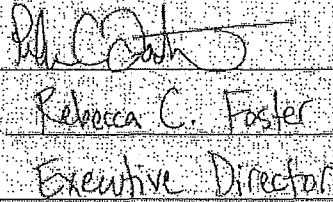 Rebecca C. Foster
Executive Director